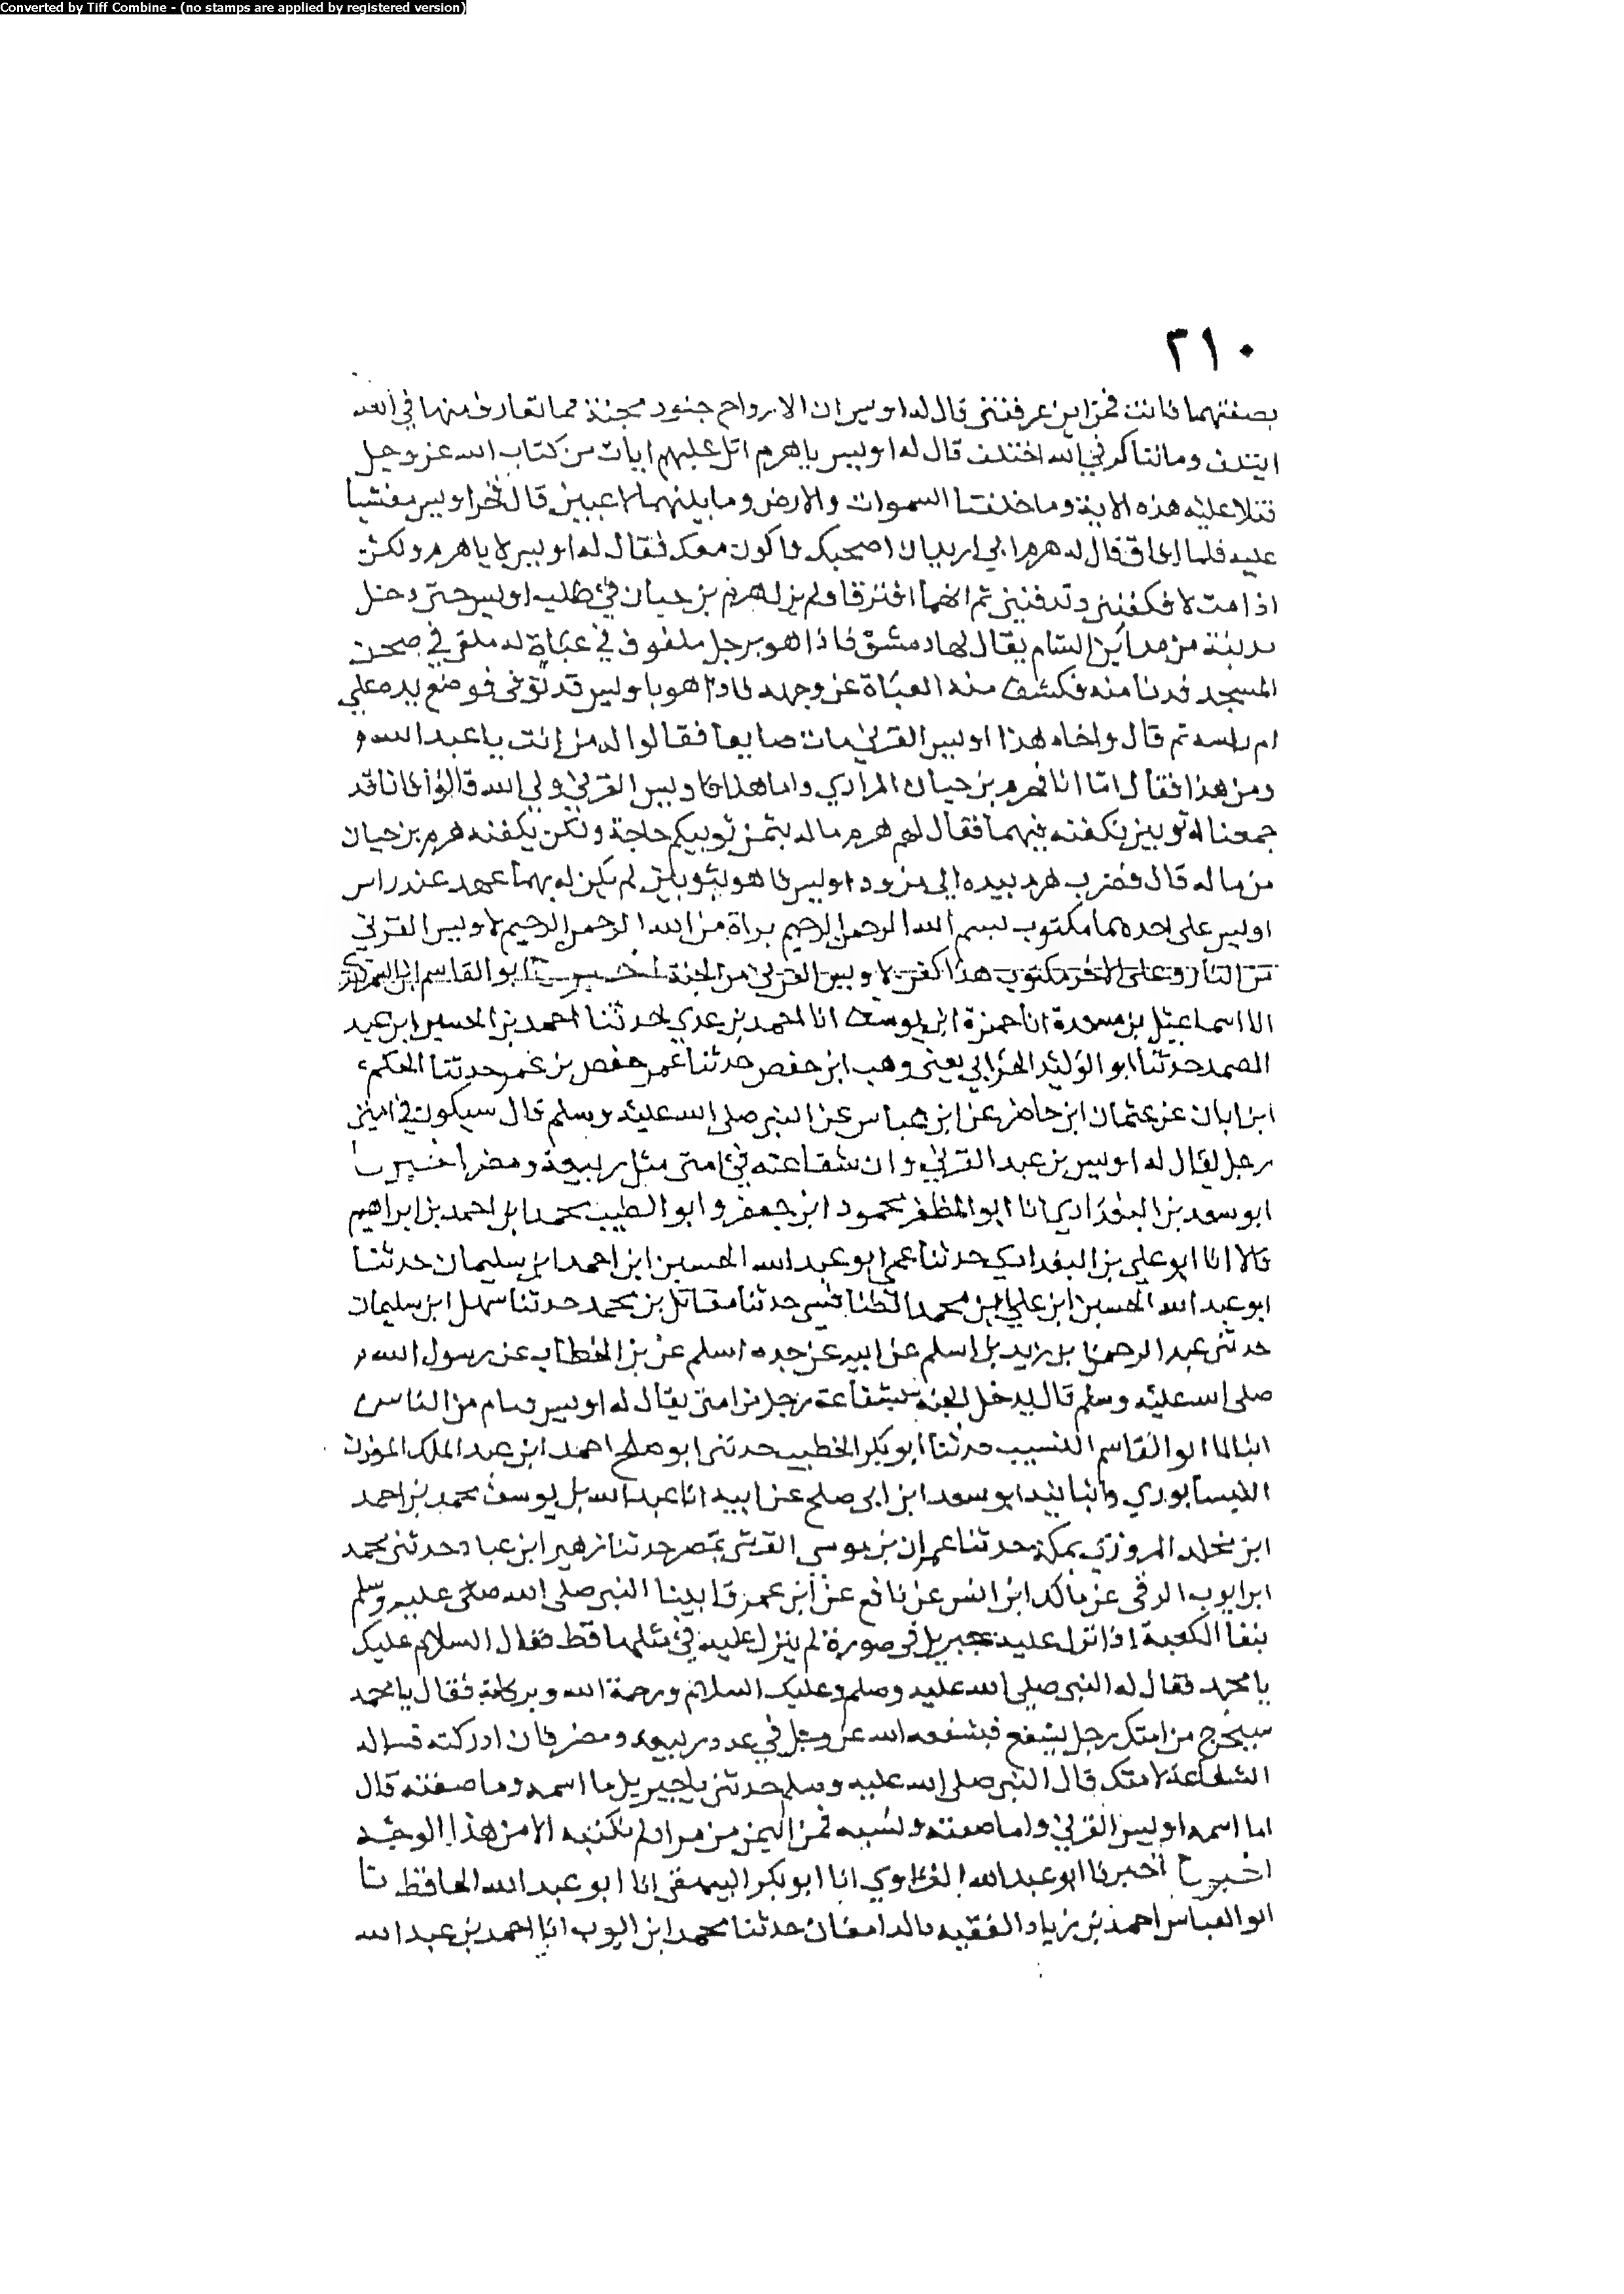 Converted by Tiff Combine - (no stamps are applied by registered version)
٢١٠
بصفتهما فانت فمن اين عرفتني قال له اويس ان الارواح جنود مجندة فما تعارف منها في الله
ايتلف وما تناكر في الله اختلف قال له اويس ياهرم اتل عليهم ايات من كتاب الله عز وجل
فتلا عليه هذه الاية وما خلقنا السموات والارض وما بينهما لاعبين قال فخر اويس مغشيا
عليه فلما افاق قال له هرم اني اريد ان اصحبك واكون معك فقال له اويس لا ياهرم ولكن
اذا مت لا فكفني وتدفني ثم انهما افترقا ولم يزل هرم بن حيان في طلب اويس حتى دخل
مدينة من مداين الشام يقال لها دمشق فاذا هو برجل ملفوف في عباة له ملقى في صحن
المسجد فدنا منه فكشف منه العباة عن وجهه فاذا هو باويس قد توفى فوضع يده على
ام راسه ثم قال واخاه هذا اويس القرني مات ضايعا فقالوا له من انت ياعبد الله و
ومن هذا فقال اما انا فهرم بن حيان المرادي واما هذا فاويس القرني ولي الله قالوا فانا قد
جمعنا له ثوبين نكفنه فيهما فقال لهم هرم ماله بثمن ثوبيكم حاجة ولكن يكفنه هرم بن حيان
من ماله قال فضرب هرم بيده الى مزود اويس فاهو بثوبين لم يكن له بهما عهد عند راس
اويس على احدهما مكتوب بسم الله الرحمن الرحيم براة من الله الرحمن الرحيم لاويس القرني
من النار وعلى الاخر مكتوب هذا كفن لاويس القرني من الجنة اخبرنا ابو القاسم ابن السمرقندي
انا اسماعيل بن مسعدة انا حمزة ابن يوسف انا احمد بن عدي حدثنا احمد بن الحسين ابن عبد
الصمد حدثنا ابو الوليد الحراني يعنى وهب ابن حفص حدثنا عمر حفص بن عمر حدثنا الحكم
ابن ابان عن عثمان ابن حاضر عن ابن عباس عن النبي صلى الله عليه وسلم قال سيكون في امتي
رجل يقال له اويس بن عبد القرني وان شفاعته في امتى مثل ربيعة ومضر اخبرنا
ابو سعد بن البغدادي انا ابو المظفر محمود ابن جعفر وابو الطيب محمد ابن احمد بن ابراهيم
قالا انا ابو علي بن البغدادي حدثنا عمي ابو عبد الله الحسين ابن احمد ابن سليمان حدثنا
ابو عبد الله الحسين ابن علي ابن محمد الطنافسى حدثنا مقاتل بن محمد حدثنا سهل ابن سليمان
حدثني عبد الرحمن بن زيد بن اسلم عن ابيه عن جده اسلم عن بن الخطاب عن رسول الله و
صلى الله عليه وسلم قال يدخل الجنة بشفاعة رجل من امتي يقال له اويس فيام من الناس
انبانا ابو القاسم النسيب حدثنا ابو بكر الخطيب حدثني ابو صلح احمد ابن عبد الملك الموذن
النيسابوري وانبانيه ابو سعد ابن ابى صلح عن ابيه انا عبد الله بن يوسف محمد بن احمد
ابن مخلد المروزي بمكة حدثنا عمران بن موسى القرشي بمصر حدثنا زهير ابن عباد حدثني محمد
ابن ايوب الرقى عن مالك ابن انس عن نافع عن ابن عمر قا بينا النبي صلى الله صلى عليه وسلم
بفنا الكعبة اذا نزل عليه جبريل فى صورة لم ينزل عليه في مثلها قط فقال السلام عليك
يامحمد فقال له النبي صلى الله عليه وسلم وعليك السلام ورحمة الله وبركاته فقال يامحمد
سيخرج من امتك رجل يشفع فيشفعه الله عز وجل في عدد ربيعة ومضر فان ادركته فساله
الشفاعة لامتك قال النبي صلى الله عليه وسلم حدثني ياجبريل ما اسمه وما صفته قال
اما اسمه اويس القرني واما صفته ونسبه فمن اليمن من مراد لم نكتبه الا من هذا الوجه
اخبرنا اخبرنا ابو عبد الله الفراوي انا ابو بكر البيهقى انا ابو عبد الله الحافظ نا
ابو العباس احمد بن زياد الفقيه بالدامغان حدثنا محمد ابن ايوب انا احمد بن عبد الله